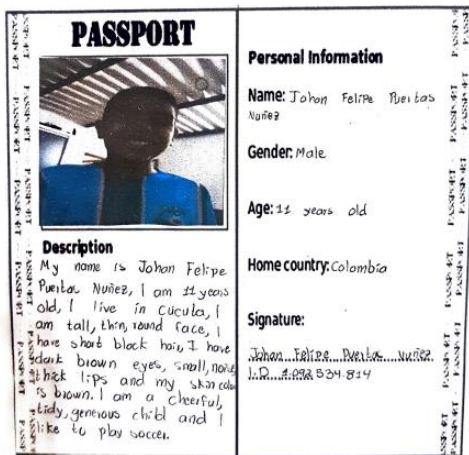 PASSPORT
Description
My name is Johan Felipe
Puertas Nuñez, I am 11 years
old, I live in Cucuta, I
am tall, thin, round face, I
have short black hair, I have
dark brown eyes, small, noise
thick lips and my skin color
is brown. I am a cheerful,
tidy, generous child and I
like to play soccer.
Personal Information
Name: Johan Felipe Puertas
Nuñez
Gender: Male
Age: 11 years old
Home country: Colombia
Signature:
Johan Felipe Puertas Nuñez
I.D 1.092.534.814
PASSPORT - PASSPORT - PASSPORT - PASSPORT